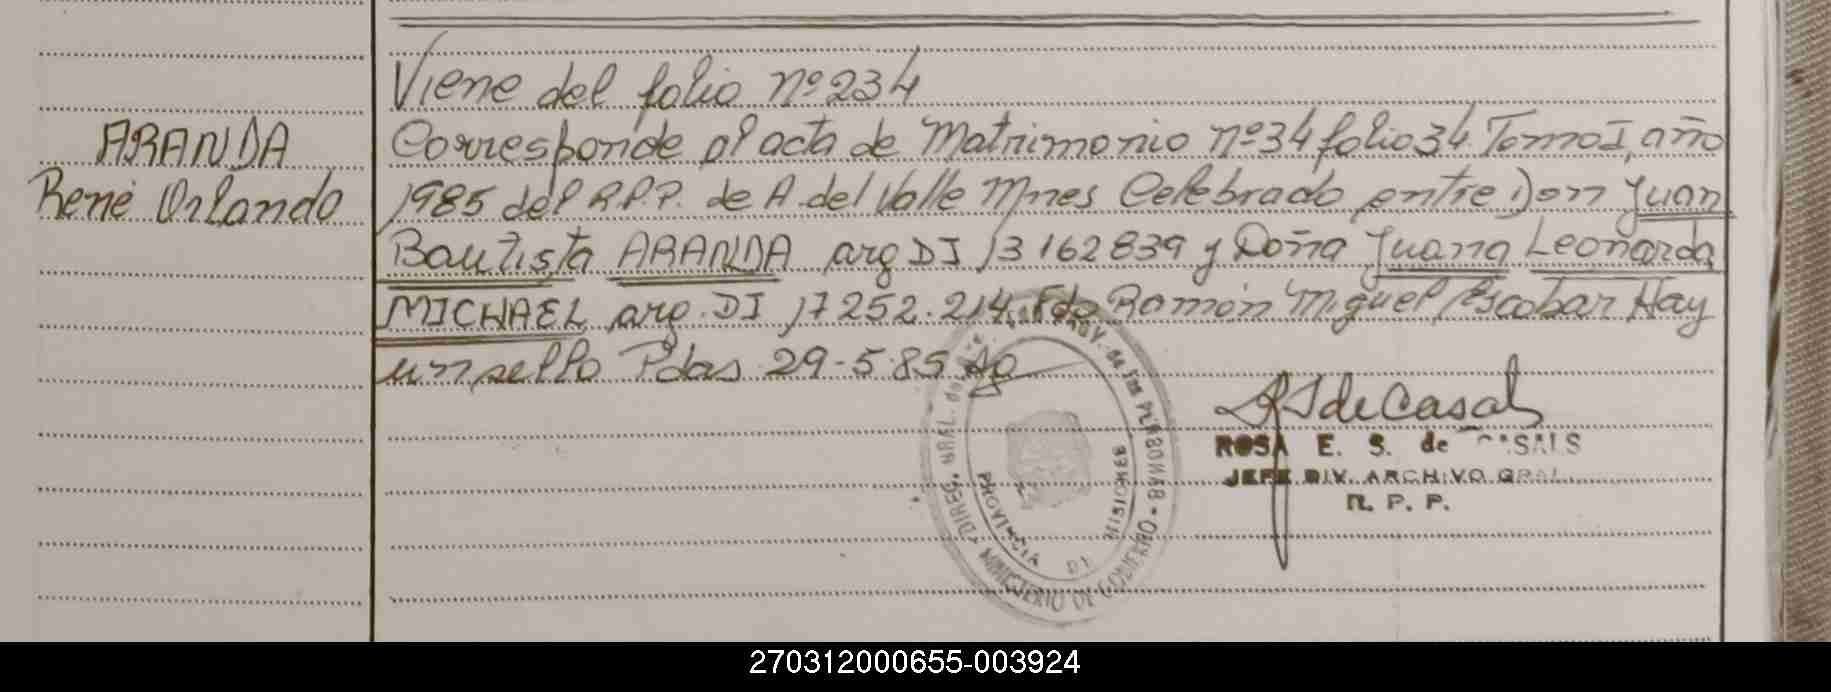 Viene del folio nº 234
ARANDA
René Orlando
Corresponde al acta de Matrimonio nº 34 folio 34 Tomo I, año
1985 del R.P.P. de A. del Valle Mnes Celebrado entre Don Juan
Bautista ARANDA arg DI 13 162839 y Doña Juana Leonarda
MICHAEL arg. DI 17 252.214. Fdo Ramón Miguel Escobar Hay
un sello Pdas 29-5-85
ROSA E. S. de CASALS
JEFE DIV. ARCHIVO GRAL.
R. P. P.
PERSONAS
MINISTERIO DE GOBIERNO
PROVINCIA DE MISIONES
270312000655-003924